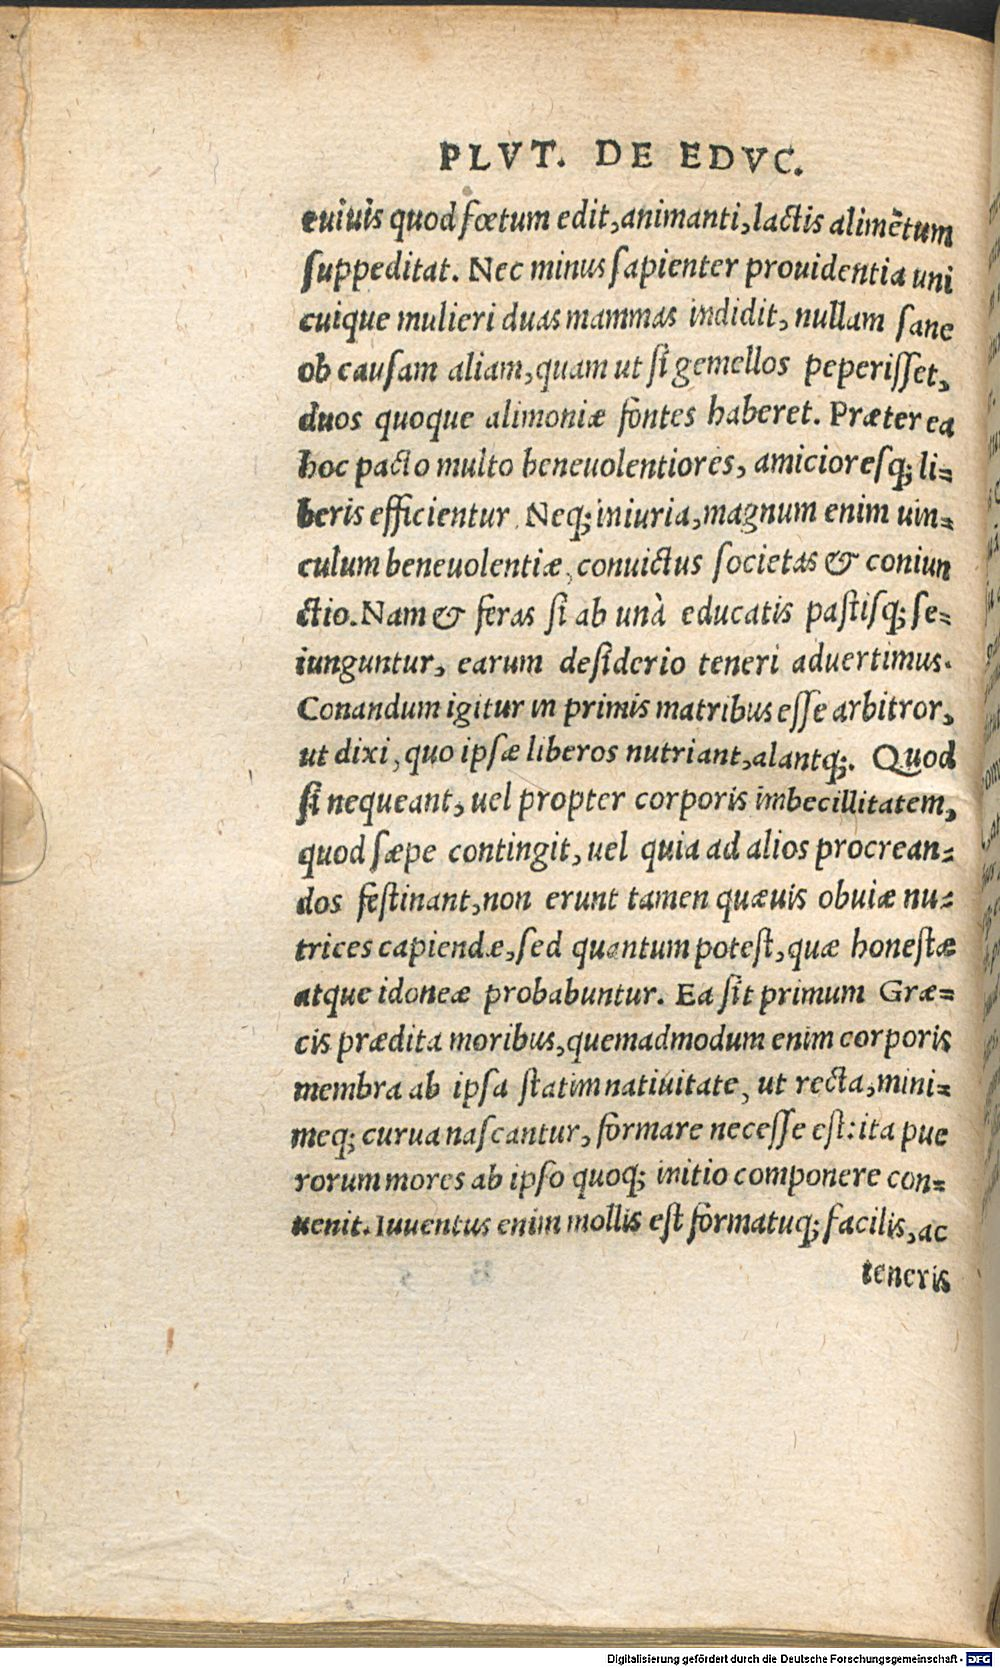 PLVT. DE EDVC.
cuiuis quod fœtum edit, animanti, lactis alimẽtum
suppeditat. Nec minus sapienter prouidentia uni
cuique mulieri duas mammas indidit, nullam sane
ob causam aliam, quam ut si gemellos peperisset,
duos quoque alimoniæ fontes haberet. Præterea
hoc pacto multo beneuolentiores, amicioresq; li=
beris efficientur. Neq; iniuria, magnum enim uin=
culum beneuolentiæ, conuictus societas & coniun
ctio. Nam & feras si ab unà educatis pastisq; se=
iunguntur, earum desiderio teneri aduertimus.
Conandum igitur in primis matribus esse arbitror,
ut dixi, quo ipsæ liberos nutriant, alantq;. Quod
si nequeant, uel propter corporis imbecillitatem,
quod sæpe contingit, uel quia ad alios procrean=
dos festinant, non erunt tamen quæuis obuiæ nu=
trices capiendæ, sed quantum potest, quæ honestæ
atque idoneæ probabuntur. Ea sit primum Græ=
cis prædita moribus, quemadmodum enim corporis
membra ab ipsa statim natiuitate, ut recta, mini=
meq; curua nascantur, formare necesse est: ita pue
rorum mores ab ipso quoq; initio componere con=
uenit. Iuuentus enim mollis est formatuq; facilis, ac
teneris
Digitalisierung gefördert durch die Deutsche Forschungsgemeinschaft - DFG